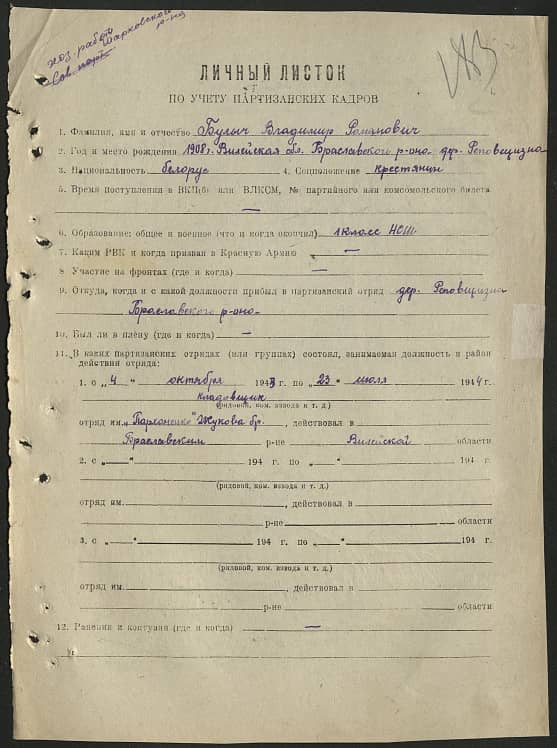 хоз. работ. Шарковского
р-на
Сов. парт.
ЛИЧНЫЙ ЛИСТОК
ПО УЧЕТУ ПАРТИЗАНСКИХ КАДРОВ
1. Фамилия, имя и отчество Булыч Владимир Романович
2. Год и место рождения 1908 г. Вилейская обл. Браславского р-она дер. Реповщизна
3. Национальность белорус 4. Соцположение крестянин
5. Время поступления в ВКП(б) или ВЛКСМ, № партийного или комсомольского билета
—
6. Образование: общее и военное (что и когда окончил) 1 класс НСШ
7. Каким РВК и когда призван в Красную Армию —
8. Участие на фронтах (где и когда) —
9. Откуда, когда и с какой должности прибыл в партизанский отряд дер. Реповщизна
Браславского р-она
10. Был ли в плену (где и когда) —
11. В каких партизанских отрядах (или группах) состоял, занимаемая должность и район
действия отряда:
1. с „4 " октября 1943 г. по „23 " июля 1944 г.
кладовщик
(рядовой, ком. взвода и т. д.)
отряд им. „Пархоменко" Жукова бр., действовал в
Браславским р-не Вилейской области
2. с „ " 194 г. по „ " 194 г.
(рядовой, ком. взвода и т. д.)
отряд им. , действовал в
р-не области
3. с „ " 194 г. по „ " 194 г.
(рядовой, ком. взвода и т. д.)
отряд им. , действовал в
р-не области
12. Ранения и контузии (где и когда) —